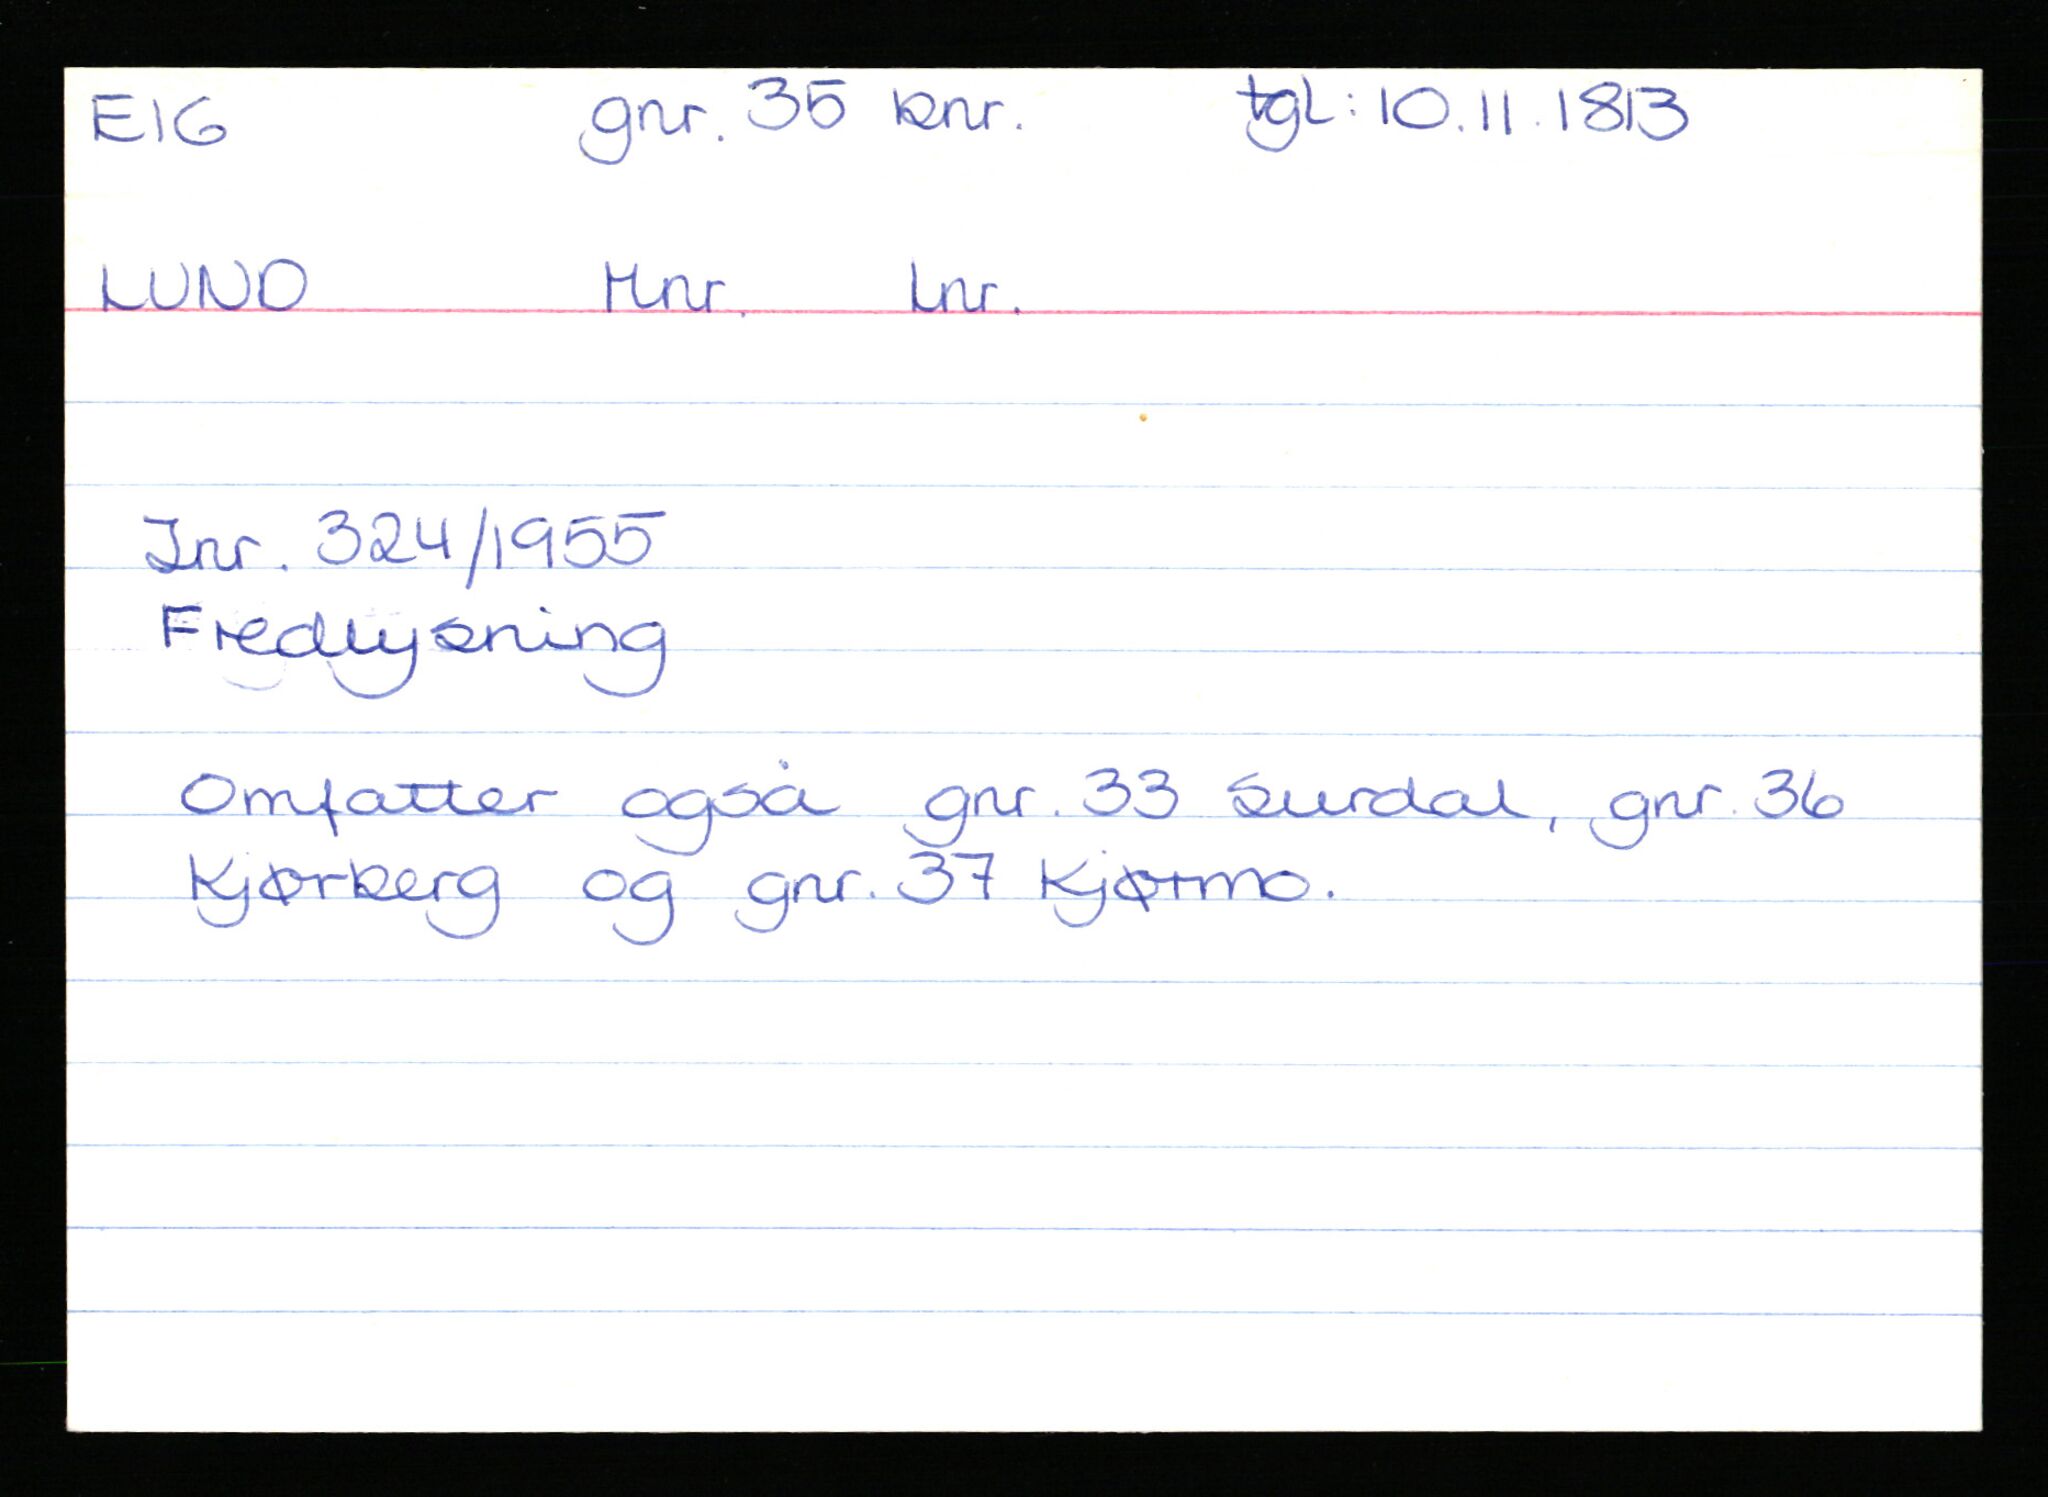 EIG gnr. 35 bnr. tgl: 10.11.1813
LUND Mnr. Lnr.
Jnr. 324/1955
Fredlysning
Omfatter også gnr. 33 Surdal, gnr. 36
Kjørberg og gnr. 37 Kjørmo.